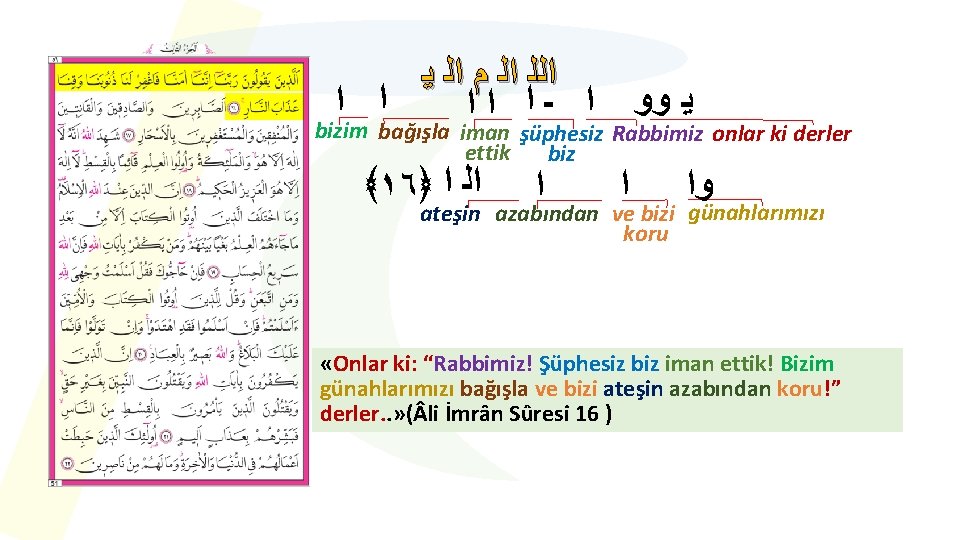 اَلْجُزْءُ الثَّالِثُ
٥١
اَلَّذِينَ يَقُولُونَ رَبَّنَٓا اِنَّنَٓا اٰمَنَّا فَاغْفِرْ لَنَا ذُنُوبَنَا وَقِنَا
عَذَابَ النَّارِۚ ﴿١٦﴾ اَلصَّابِرِينَ وَالصَّادِقِينَ وَالْقَانِتِينَ
وَالْمُنْفِقِينَ وَالْمُسْتَغْفِرِينَ بِالْاَسْحَارِ ﴿١٧﴾ شَهِدَ اللّٰهُ اَنَّهُ لَٓا
اِلٰهَ اِلَّا هُوَۙ وَالْمَلٰٓئِكَةُ وَاُو۬لُوا الْعِلْمِ قَٓائِمًا بِالْقِسْطِۜ لَٓا اِلٰهَ
اِلَّا هُوَ الْعَزِيزُ الْحَكِيمُۜ ﴿١٨﴾ اِنَّ الدِّينَ عِنْدَ اللّٰهِ الْاِسْلَامُ
وَمَا اخْتَلَفَ الَّذِينَ اُو۫تُوا الْكِتَابَ اِلَّا مِنْ بَعْدِ
مَا جَٓاءَهُمُ الْعِلْمُ بَغْيًا بَيْنَهُمْۜ وَمَنْ يَكْفُرْ بِاٰيَاتِ اللّٰهِ فَاِنَّ اللّٰهَ
سَرِيعُ الْحِسَابِ ﴿١٩﴾ فَاِنْ حَٓاجُّوكَ فَقُلْ اَسْلَمْتُ وَجْهِيَ لِلّٰهِ
وَمَنِ اتَّبَعَنِۜ وَقُلْ لِلَّذِينَ اُو۫تُوا الْكِتَابَ وَالْاُمِّيّ۪نَ
ءَاَسْلَمْتُمْۜ فَاِنْ اَسْلَمُوا فَقَدِ اهْتَدَوْاۚ وَاِنْ تَوَلَّوْا فَاِنَّمَا
عَلَيْكَ الْبَلَاغُۜ وَاللّٰهُ بَصِيرٌ بِالْعِبَادِ۟ ﴿٢٠﴾ اِنَّ الَّذِينَ
يَكْفُرُونَ بِاٰيَاتِ اللّٰهِ وَيَقْتُلُونَ النَّبِيّ۪نَ بِغَيْرِ حَقٍّۙ
وَيَقْتُلُونَ الَّذِينَ يَأْمُرُونَ بِالْقِسْطِ مِنَ النَّاسِۙ
فَبَشِّرْهُمْ بِعَذَابٍ اَلِيمٍ ﴿٢١﴾ اُو۬لٰٓئِكَ الَّذِينَ حَبِطَتْ
اَعْمَالُهُمْ فِي الدُّنْيَا وَالْاٰخِرَةِۘ وَمَا لَهُمْ مِنْ نَاصِرِينَ ﴿٢٢﴾
51
اللـ الـ م الـ يـ
يـ وو ا - ا ا ا ا ا
bizim bağışla iman şüphesiz Rabbimiz onlar ki derler
ettik biz
وا ا ا الـ ا ﴿١٦﴾
ateşin azabından ve bizi günahlarımızı
koru
«Onlar ki: “Rabbimiz! Şüphesiz biz iman ettik! Bizim
günahlarımızı bağışla ve bizi ateşin azabından koru!”
derler..» (Âli İmrân Sûresi 16 )